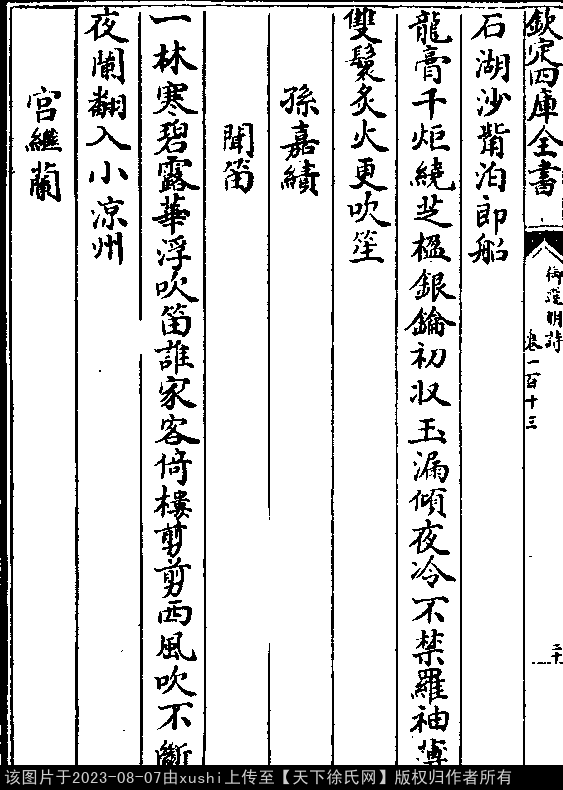 欽定四庫全書
御選明詩
卷一百十三
二十
石湖沙觜泊郎船
龍膏千炬繞芝楹銀鑰初收玉漏傾夜冷不禁羅袖薄
雙鬟炙火更吹笙
孫嘉績
聞笛
一林寒碧露華浮吹笛誰家客倚樓剪剪西風吹不斷
夜闌翻入小涼州
宮繼蘭
该图片于2023-08-07由xushi上传至【天下徐氏网】版权归作者所有